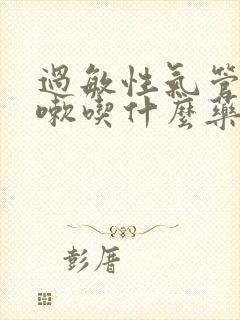 過敏性氣管
嗽喫什麼藥
彭厝